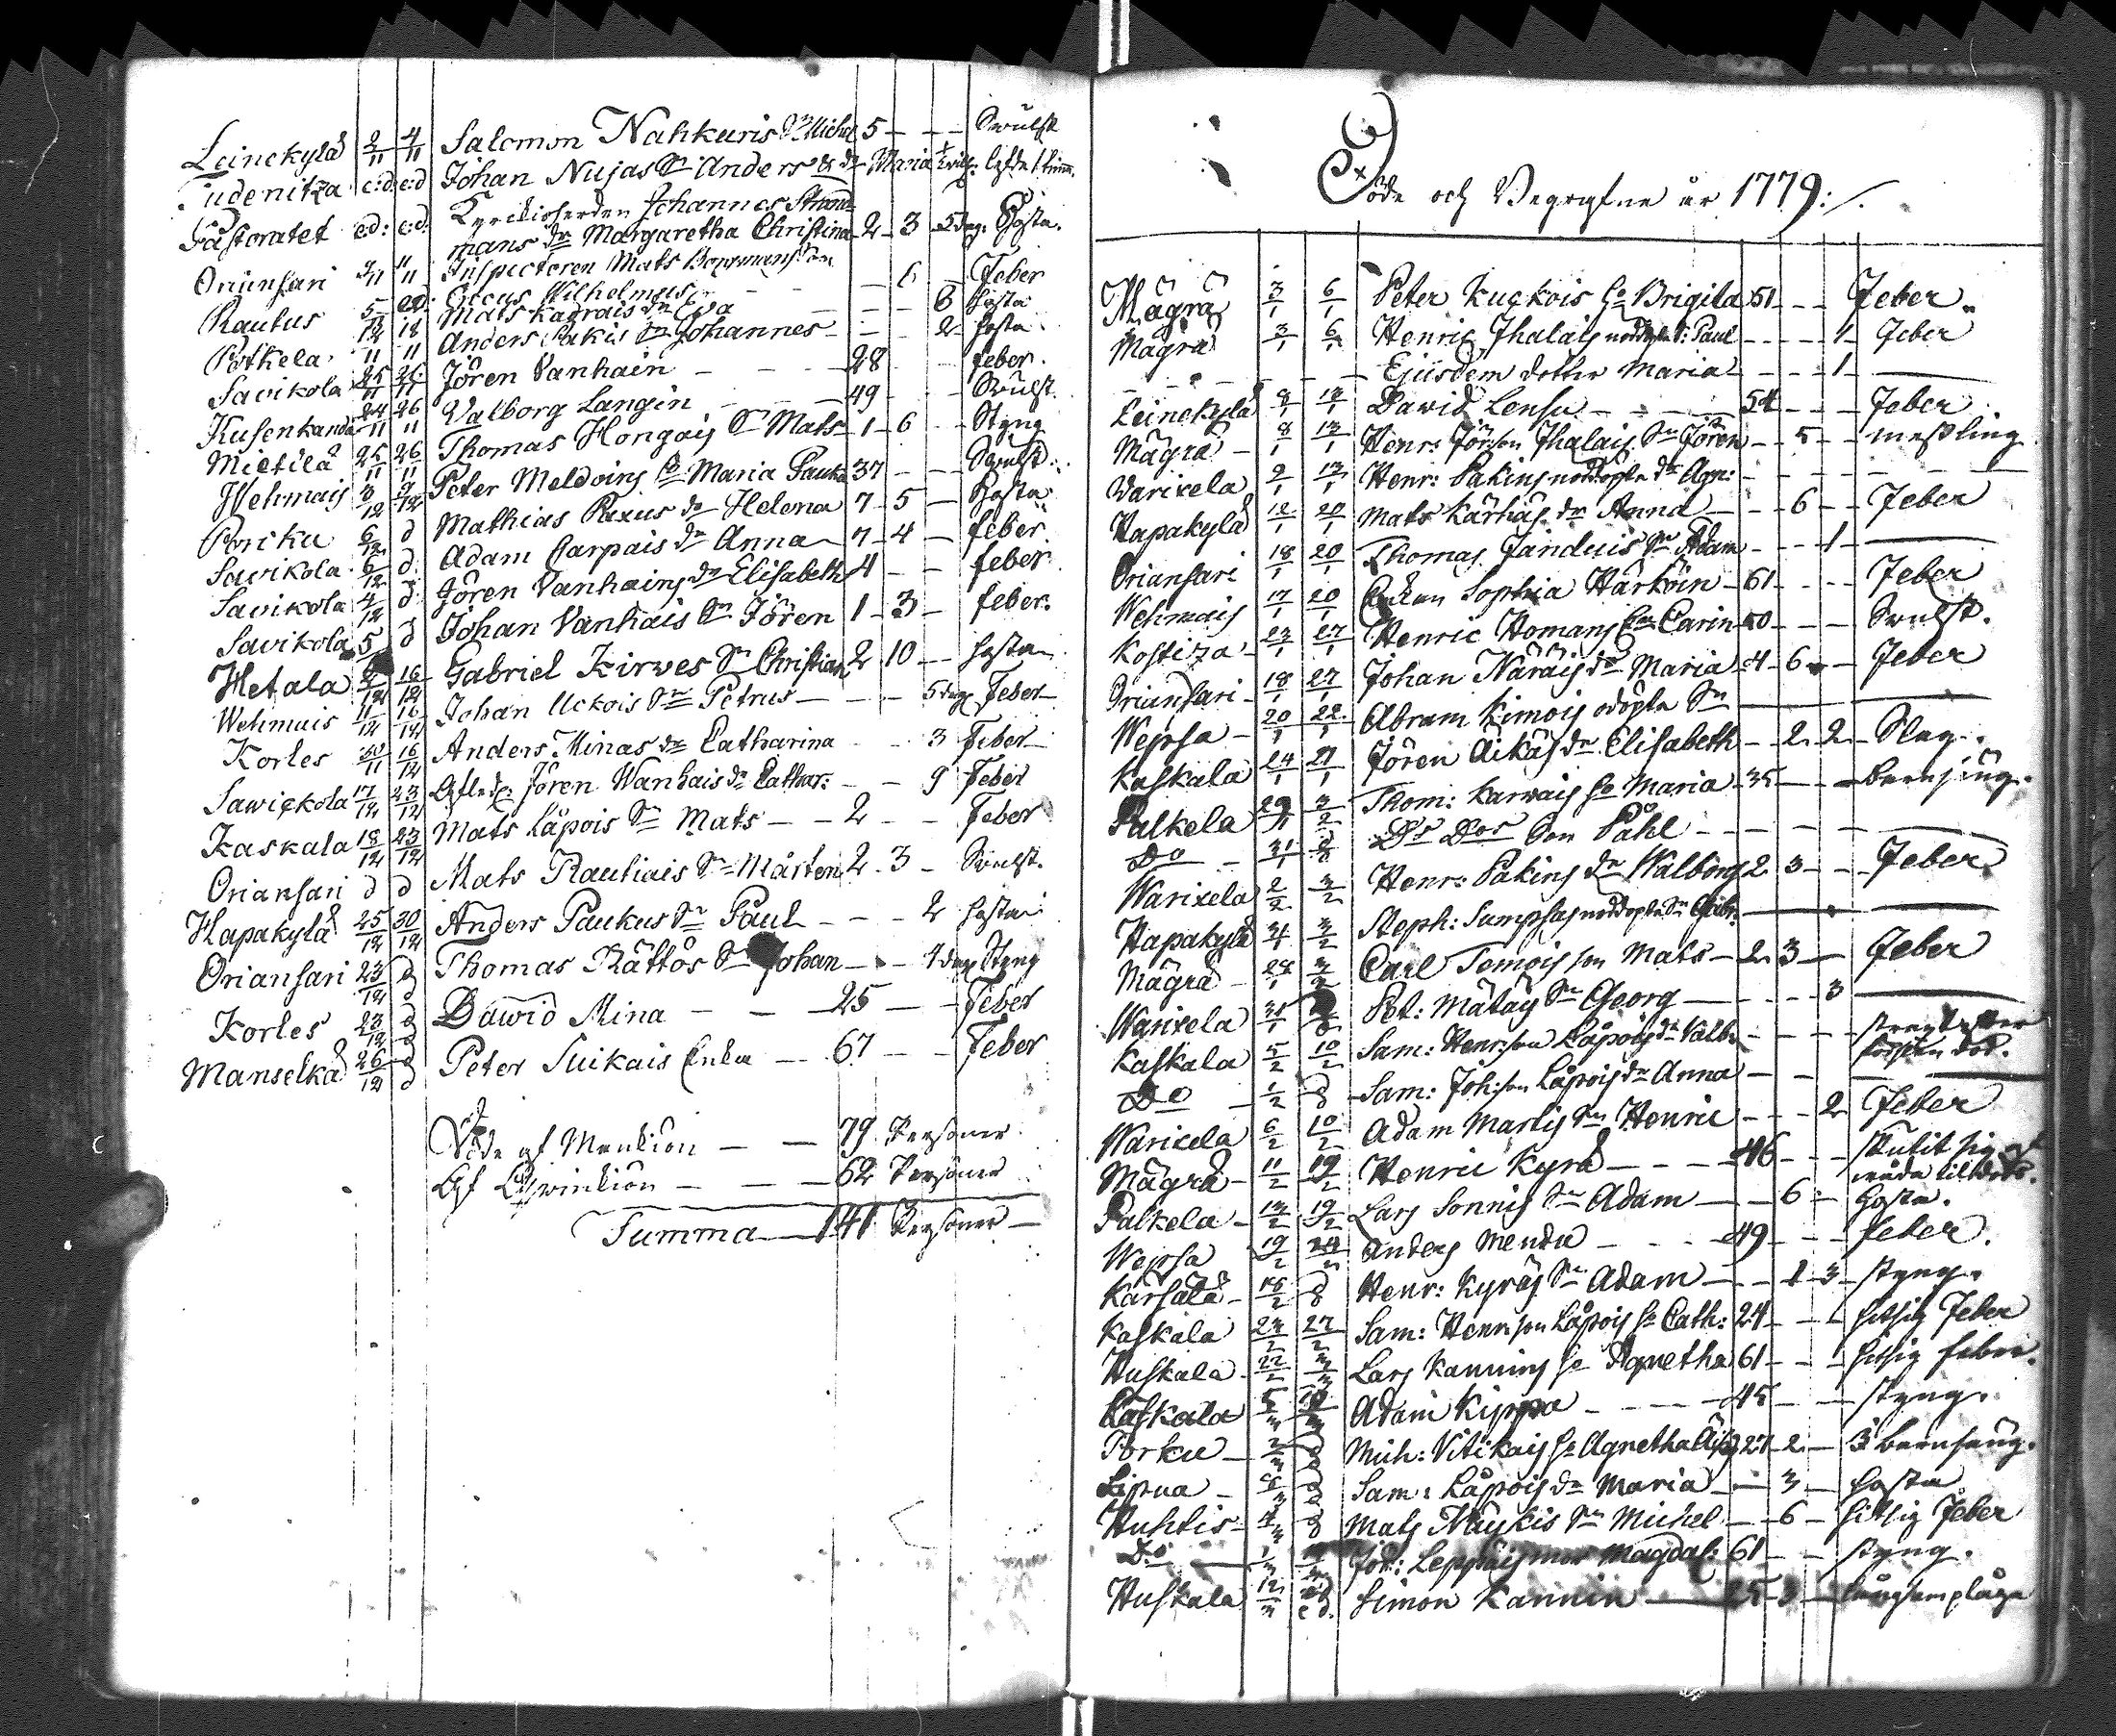 Leinekylä 2/11 4/11 Salomon Nahkuris Sn Michel 5 - - - Swulst
Tudenitza e:d e:d Johan Nujas Sn Anders & dr Maria
Pastoratet e:d: e:d: Kyrckioherden Johannes
mans dr Margaretha Christina 2 - 3 - 5 dag. Hosta.
Oriansari 11/11 Inspectoren Mats
Ericus Wilhelmus 6 - Feber
Rautus 5 e:d: Mats Kaurais dr Eva 8 Hosta
Potkela 18 Anders Pakis Sn Johannes - - - 2 - Hosta
Savikola 25/11 26/11 Jören Vanhain - - - 28 feber.
Kusenkanda 24/11 26/11 Valborg Langin - - - 49 Swulst.
Mietilä 25/11 26/11 Thomas Hongais Sn Mats - 1 - 6 - - Styng
Wehmais 3/12 9/12 Peter Meldoins h: Maria Pauku 37 - - - Swulst.
Porcku 6/12 d Mathias Paxus dr Helena 7 - 5 - Hosta
Savikola 6/12 d Adam Carpais dr Anna 7 - 4 - feber.
Savikola 4/12 d Jören Vanhains dr Elisabeth 4 - - feber
Savikola 5 d Johan Vanhais Sn Jören 1 - 3 - feber.
Metala 16/12 Gabriel Kirwes Sn Christian 2 10 - - Hosta
Wehmais 11/12 16/12 Johan Uckois Sn Petrus - - - 5 dag. Feber
Kortes 30/11 16/12 Anders Minas dr Catharina - - 3 Feber
Sawickola 17/12 23/12 Jören Wanhais dr Cathar: - - 9 Feber
Kaskala 18/12 23/12 Mats Läpois Sn Mats - - 2 - - Feber
Oriansari d d Mats Rautiais Sn Mårten 2 - 3 - Swulst.
Hapakylä 25/12 30/12 Anders Paukus Sn Paul - - - 2 Hosta
Oriansari 23/12 d Thomas Rättös Sn Johan - - - 4 dag. Styng
Kortes 23/12 d Dawid Mina - - - 25 - - Feber
Manselkä 26/12 d Peter Suikais Enka - 67 - - Feber
Döde af Mankiön - - 79 Personer
Af Qwinkiön - - - 62 Personer
Summa - 141 Personer -
Döde och Begrafne år 1779:/.
Mägrä 3/1 6/1 Peter Kuckois h: Brigita 51 - - - Feber.
Mägrä 3/1 6/1 Henric Ihalais nöddöpte S: Paul - - - - 1 - Feber
Ejusdem dotter Maria - - - 1 -
Leinekylä 8/1 13/1 Dawid Lensu - - - 54 - - - Feber
Mägrä 8/1 13/1 Henr: Jörson Ihalais Sn Jören - - 5 - - messling
Warixela 9/1 13/1 Henr: Pakins nöddöpta dr Agn: - - -
Hapakylä 12/1 20/1 Mats Kärhäs dr Anna - - - 6 - - Feber
Oriansari 18/1 20/1 Thomas Janduis Sn Adam - - - 1 -
Wehmais 17/1 20/1 Enkan Sophia Härköin - 61 - - - Feber
Kostiza 23/1 27/1 Henric Homans h: Carin 50 - - - Swulst.
Oriansari 18/1 27/1 Johan Näräis dr Maria - 4 - 6 - - Feber
Wepsa 20/1 22/1 Abram Kimois odöpta Sn
Kaskala 24/1 27/1 Jören Äikäs dr Elisabeth - - 2 - 2 - Slag.
Palkela 29/1 3/2 Thom: Karwais h: Maria - 35 - - - Barnsäng.
Do 31/1 Dr Dos Son Påhl - - -
Warixela 2/2 3/2 Henr: Pakins dr Walborg 2 3 - - Feber.
Hapakylä 31/1 3/2 Steph: Sumpsas nöddöpta Sn Gabr:
Mägrä 28/1 3/2 Carl Temois son Mats - 2 3 - Feber
Warixela 31/1 Pet: Mätäis Sn Georg - - - 3 -
Kaskala 5/2 10/2 Sam: Henrson Läpois dr Valb: - - - strax efter
födslen död.
Do 1/2 d Sam: Joh:son Läpois dr Anna - - -
Warixela 6/2 10/2 Adam Martis Sn Henric - - - 2 Feber
Mägrä 11/2 19/2 Henric Kyrä - - - - 46 - - - skutit sig af
våda till döds.
Palkela 13/2 19/2 Lars Sonnis Sn Adam - - - 6 - Hosta.
Wepsa 19/2 24/2 Anders Mendu - - - 49 - - - feber.
Karsala 18/2 d Henr: Kyräs Sn Adam - - - 1 - 3 - styng.
Kaskala 23/2 27/2 Sam: Henrison Läpois h: Cath: 24 - - - hitsig Feber
Huskala 22/2 Lars Kannins h: Agnetha 61 - - - hitsig feber.
Kaskala 5/3 Adam Kippa - - - - 45 - - - styng.
Porku 2/3 d Mich: Vitikais h: Agnetha 27 - 2 - 3 barnsäng.
Lipua d Sam: Läpois dr Maria - - 3 - Hosta
Huhtis 4/3 d Mats Näykis Sn Michel - - 6 - hitsig Feber
Do 1/3 Joh: Leppäis mor Magdal: 61 - - styng.
Huskala 12/3 e d. Simon Kannin - 25 - 3 - långsam plåga